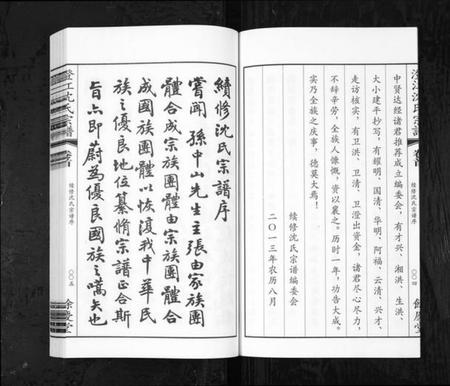 中贤达经诸君推荐成立编委会，有才兴、湘洪、生洪、
大小建平抄写，有耀明、国清、华明、阿福、云清、兴才、
走访核实，有卫洪、卫清、卫澄出资金，诸君尽心尽力，
不辞辛劳，全族人慷慨，资以襄之。历时一年，功告大成。
实乃全族之庆事，德莫大焉！
续修沈氏宗谱编委会
二〇一三年农历八月
澄江沈氏宗谱
卷首
续修沈氏宗谱序
〇〇四
續修沈氏宗譜序
嘗聞 孫中山先生主張由家族團
體合成宗族團體由宗族團體合
成國族團體以恢復我中華民
族之優良地位纂脩宗譜正合斯
旨亦即蔚為優良國族之嚆矢也
澄江沈氏宗譜
卷首
续修沈氏宗谱序
〇〇五
餘慶堂